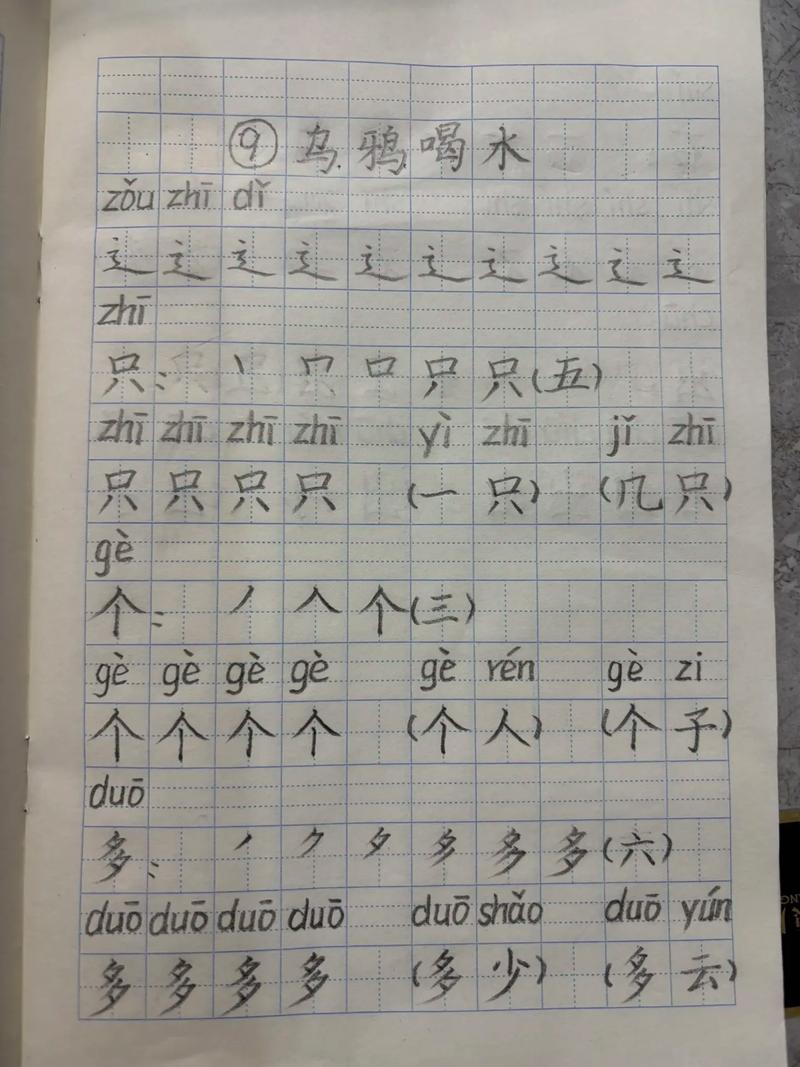 ⑨ 乌鸦喝水
zǒu zhī dǐ
辶 辶 辶 辶 辶 辶 辶 辶 辶 辶
zhī
只: 丶 冖 口 尸 只(五)
zhī zhī zhī zhī yì zhī jǐ zhī
只 只 只 只 (一只) (几只)
gè
个: ノ 人 个(三)
gè gè gè gè gè rén gè zi
个 个 个 个 (个人) (个子)
duō
多: ノ ク 夕 多 多 多(六)
duō duō duō duō duō shǎo duō yún
多 多 多 多 (多少) (多云)